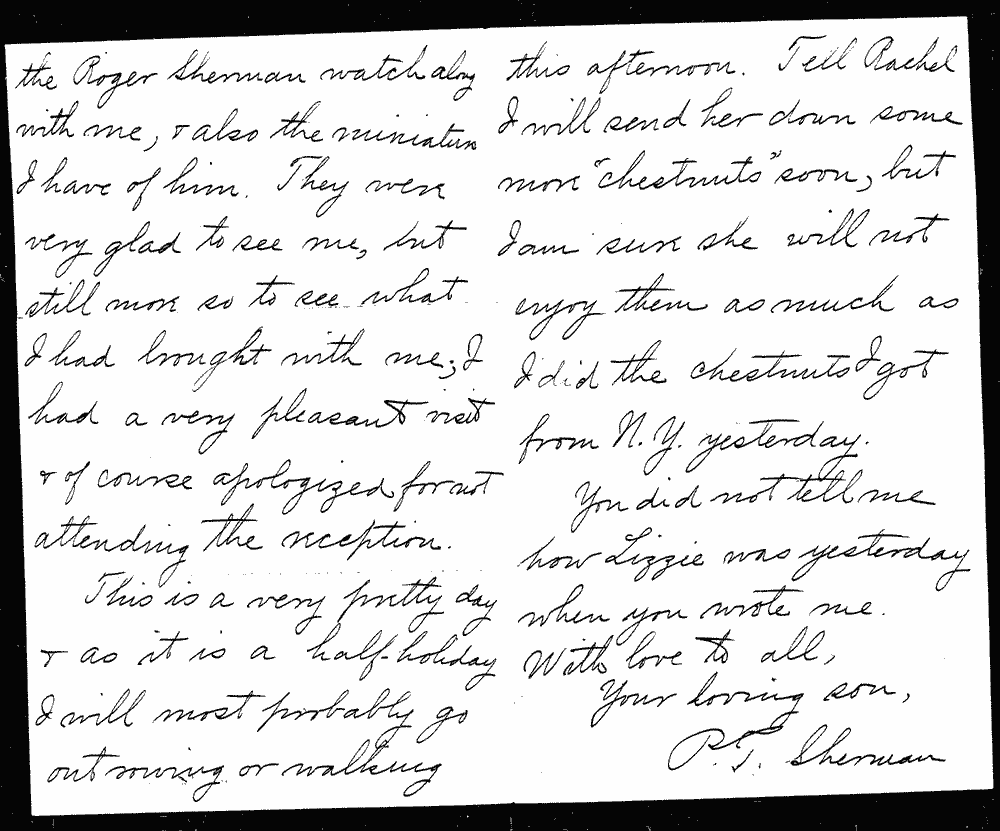 the Roger Sherman watch along
with me, & also the miniature
I have of him. They were
very glad to see me, but
still more so to see what
I had brought with me; I
had a very pleasant visit
& of course apologized for not
attending the reception.
This is a very pretty day
& as it is a half-holiday
I will most probably go
out rowing or walking
this afternoon. Tell Rachel
I will send her down some
more "chestnuts" soon, but
I am sure she will not
enjoy them as much as
I did the chestnuts I got
from N.Y. yesterday.
You did not tell me
how Lizzie was yesterday
when you wrote me.
With love to all,
Your loving son,
P.T. Sherman